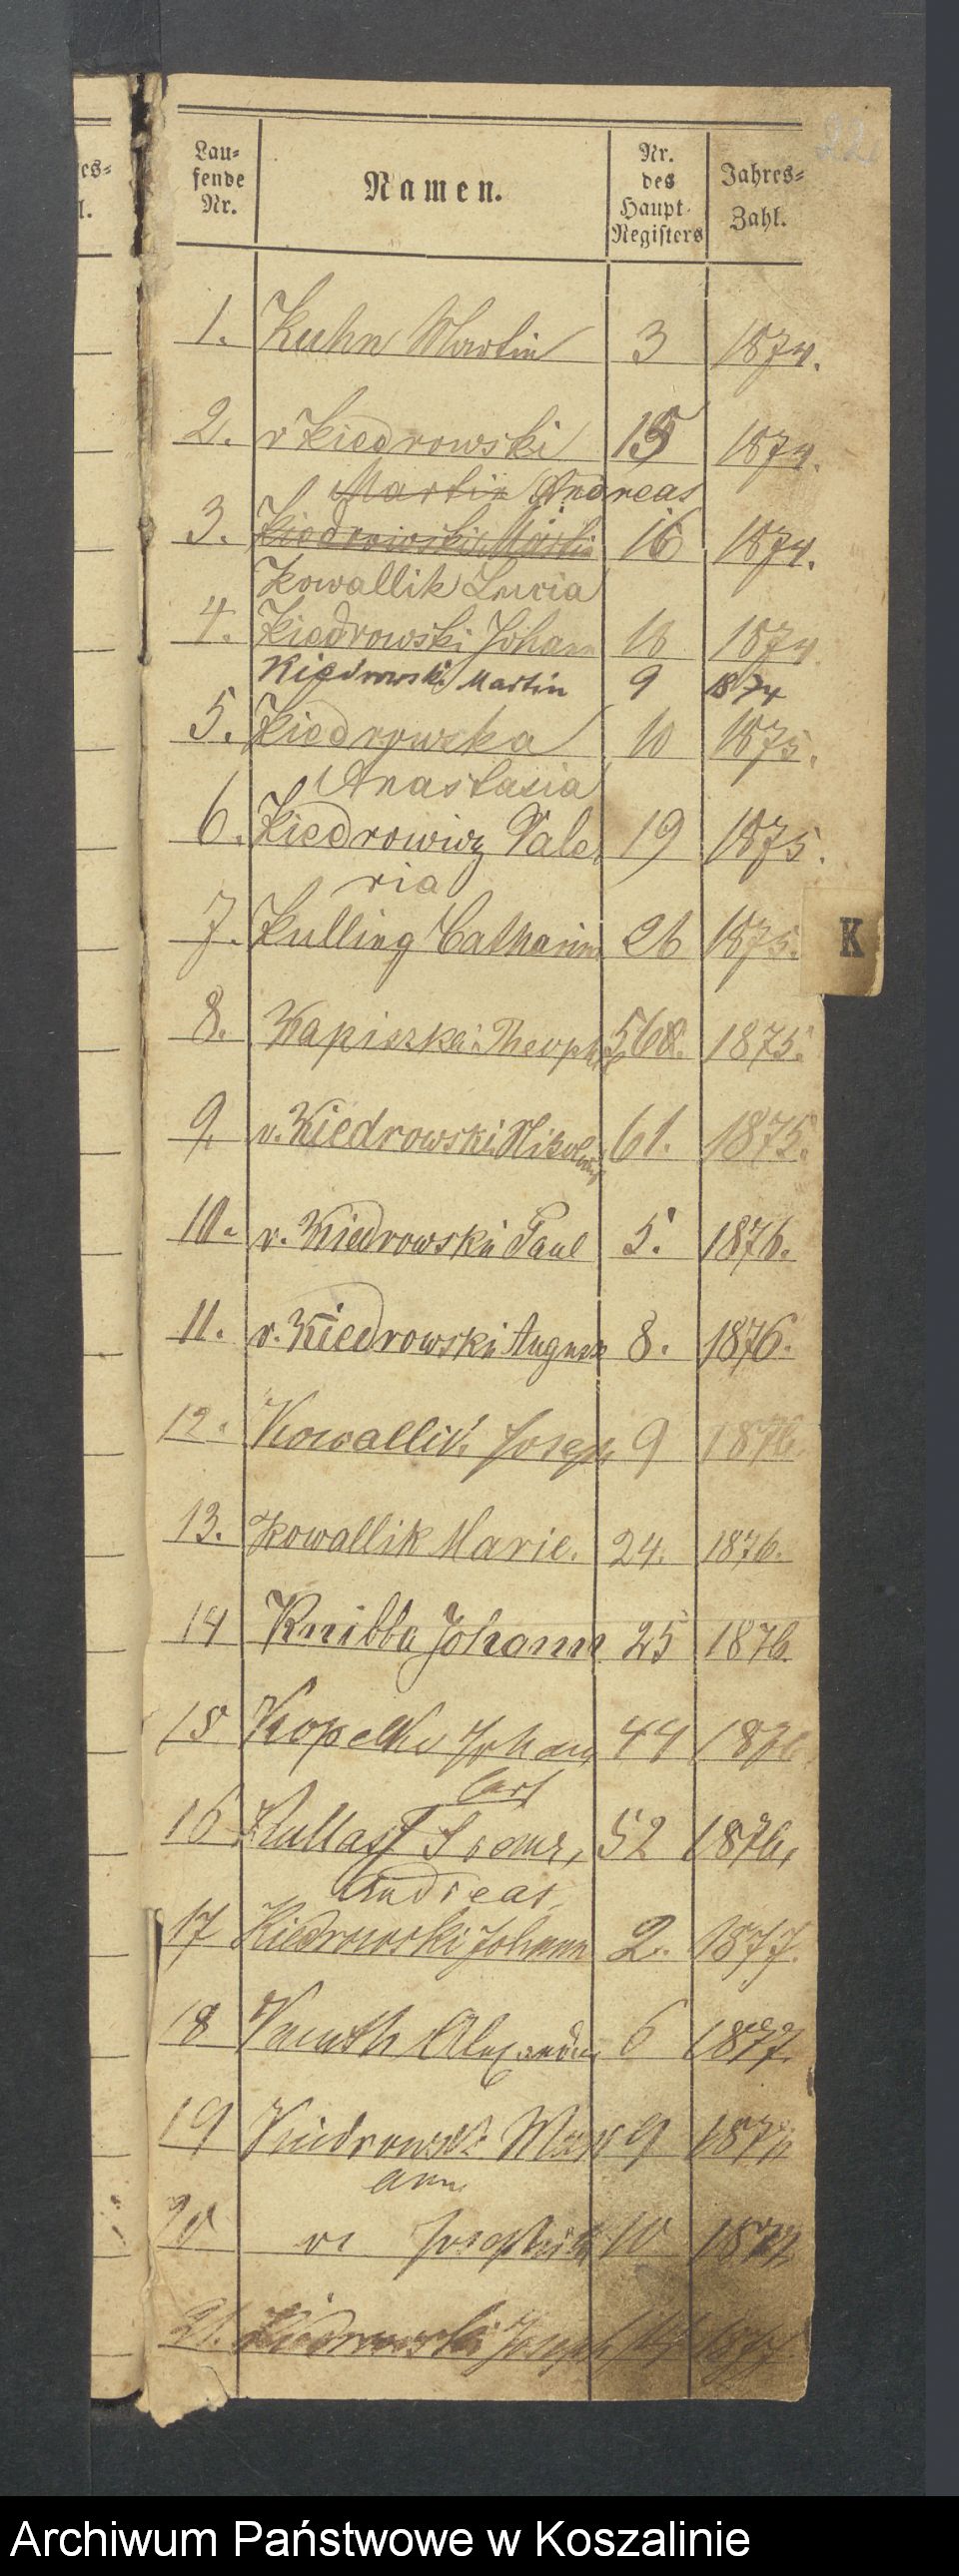 22.
Lau-
fende
Nr.
Namen.
Nr.
des
Haupt-
Registers
Jahres-
Zahl.
es-
l.
1. Kuhn Martin 3 1874.
2. v Kiedrowski 15 1874.
Martin Andreas
3. Kiedrowski Martin 16 1874.
Kowallik Lucia
4. Kiedrowski Johann 18 1874
Kiedrowski Martin 9 1874
5. Kiedrowska 10 1875.
Anastasia
6. Kiedrowicz Vale 19 1875.
ria
7. Kulling Catharina 26 1875.
K
8. Kapiszka Theoph 56 1875.
9. v. Kiedrowski Nikolaus 61. 1875.
10. v. Kiedrowski Paul 5. 1876.
11. v. Kiedrowski August 8. 1876.
12. Kowallik Joseph 9 1876
13. Kowallik Marie. 24. 1876.
14 Knibba Johann 25 1876.
15 Kopelke Johann 44 1876
Carl
16 52 1876,
Andreas
17 Kiedrowski Johann 2. 1877.
18 Alexander 6 1877.
19 Kiedrowski 9 1877
20 10 1877
21. Kiedrowski Joseph 14 1877
Archiwum Państwowe w Koszalinie